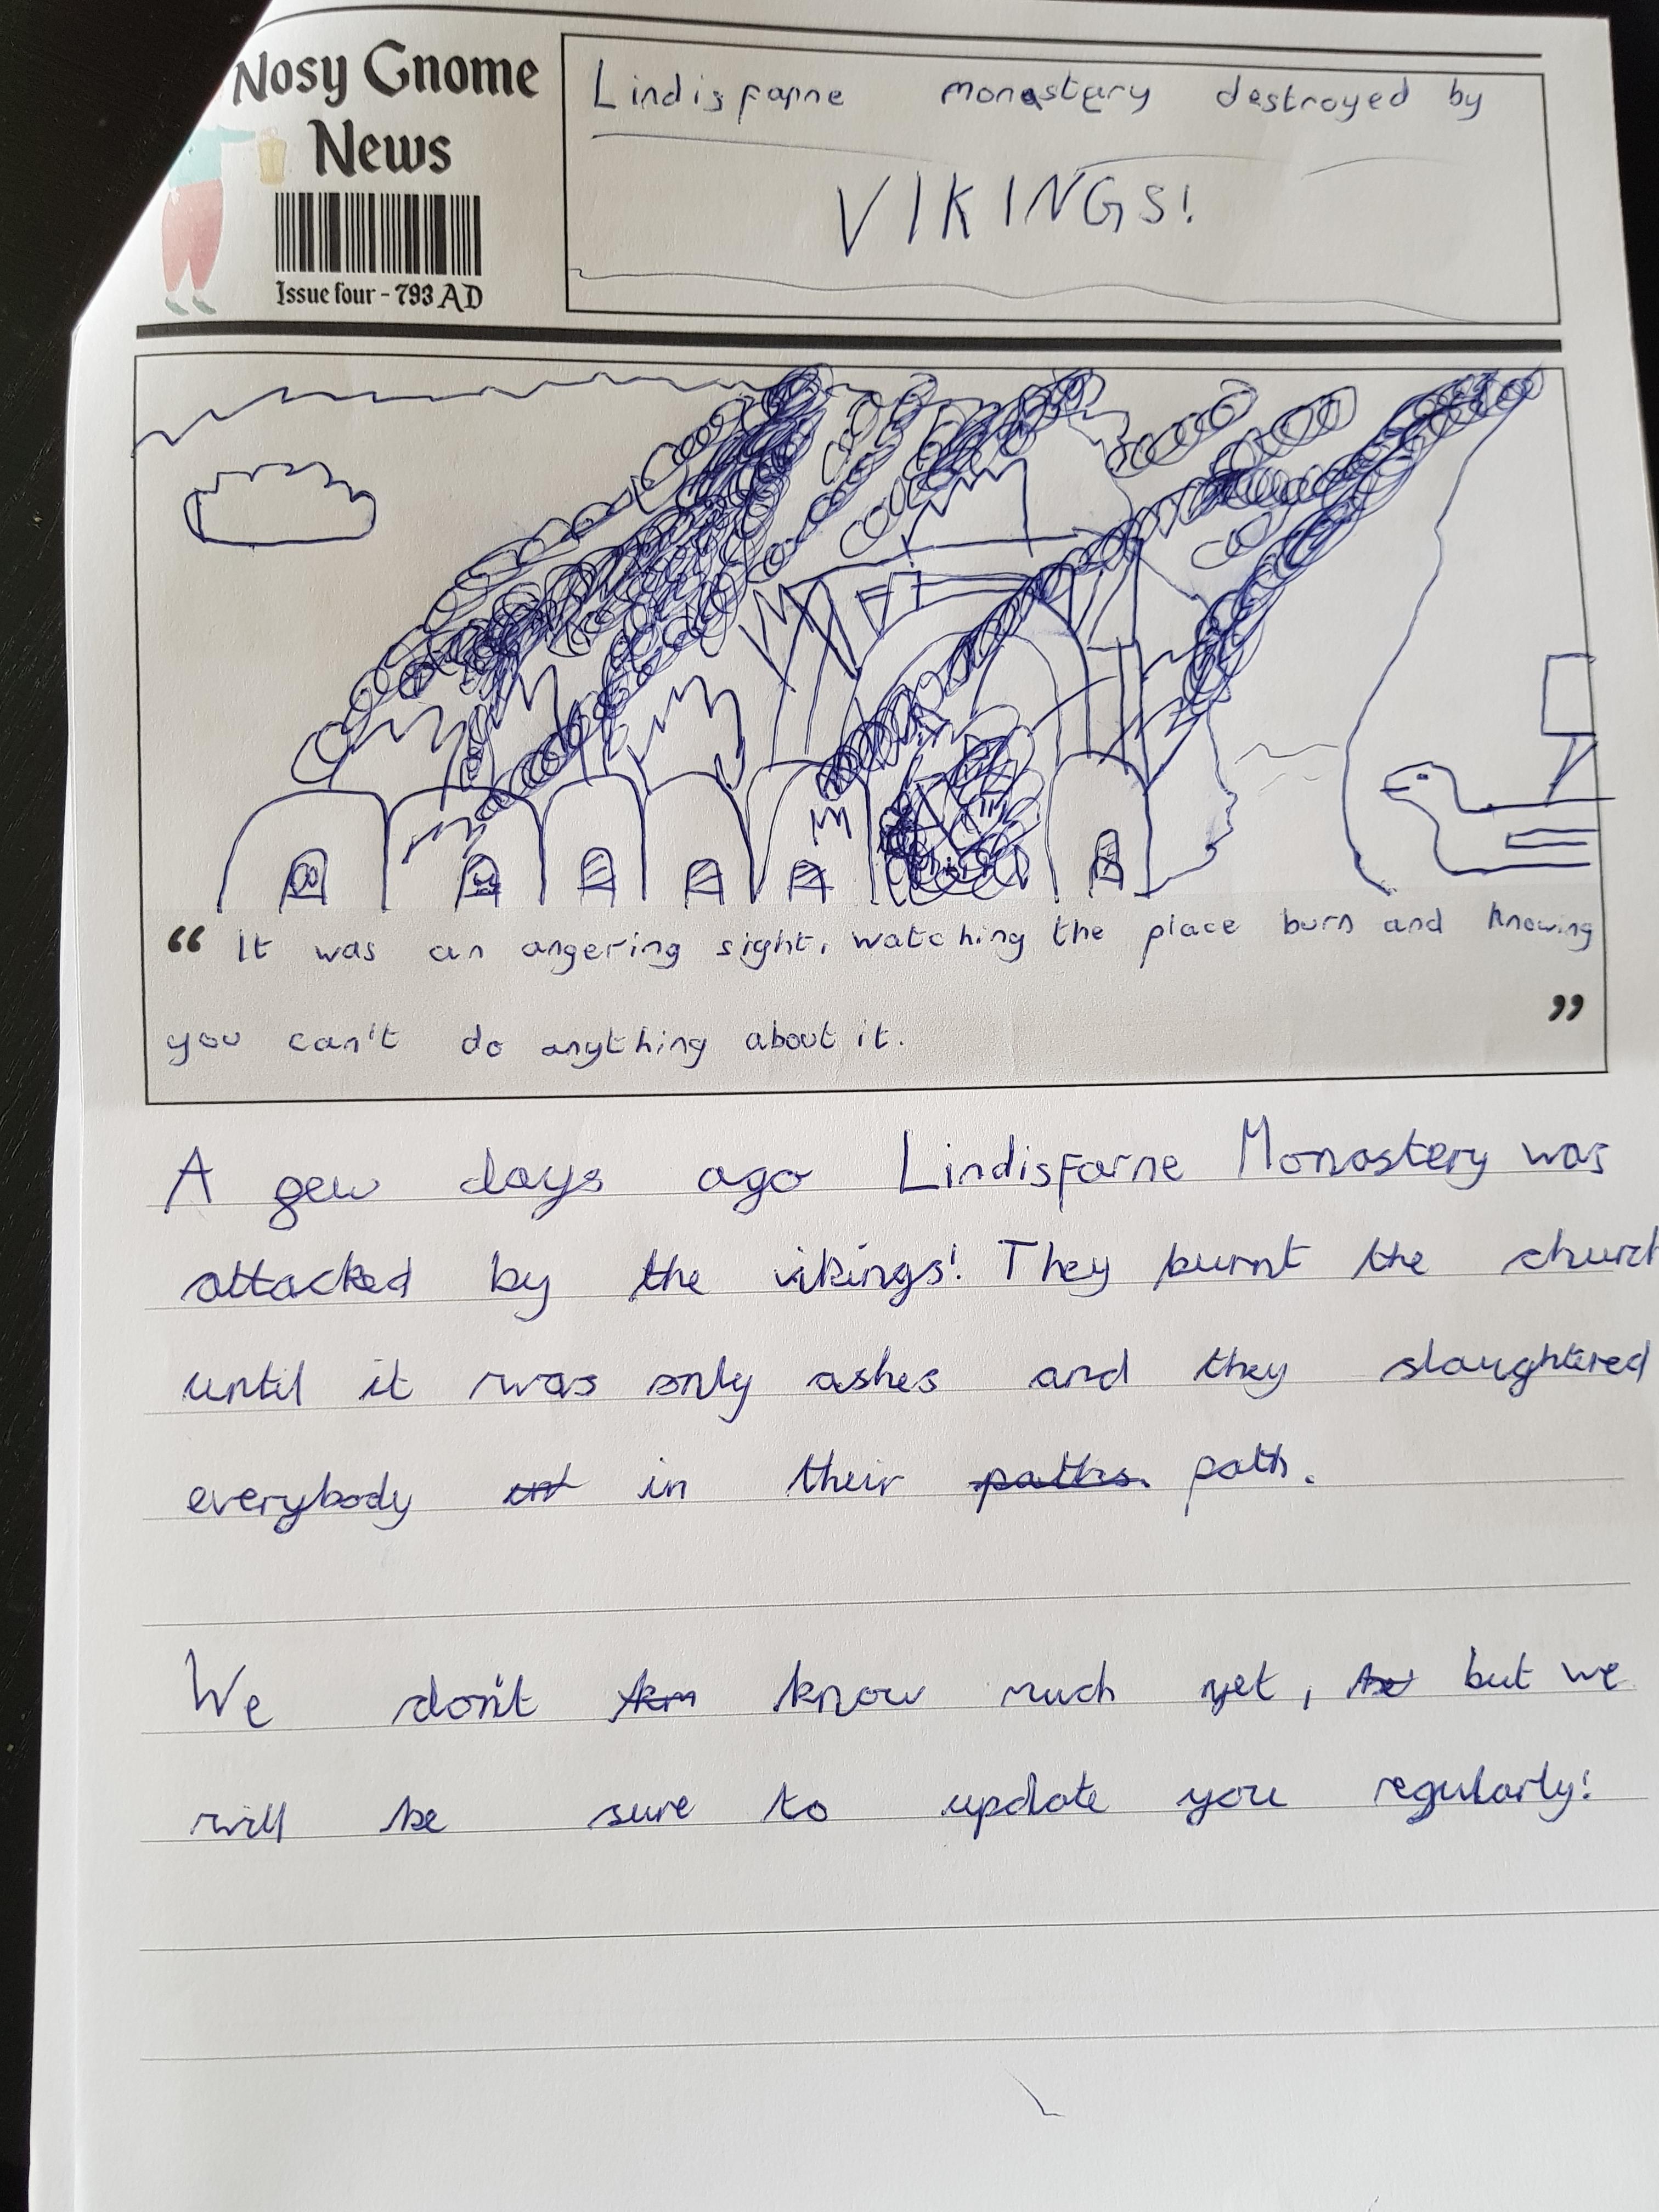 Nosy Gnome
News
Issue four - 793 AD
Lindisfarne monastery destroyed by
VIKINGS!
“ It was an angering sight, watching the place burn and knowing
you can't do anything about it. ”
A few days ago Lindisfarne Monastery was
attacked by the vikings! They burnt the church
until it was only ashes and they slaughtered
everybody in their paths. path.
We don't know much yet, but we
will be sure to update you regularly!